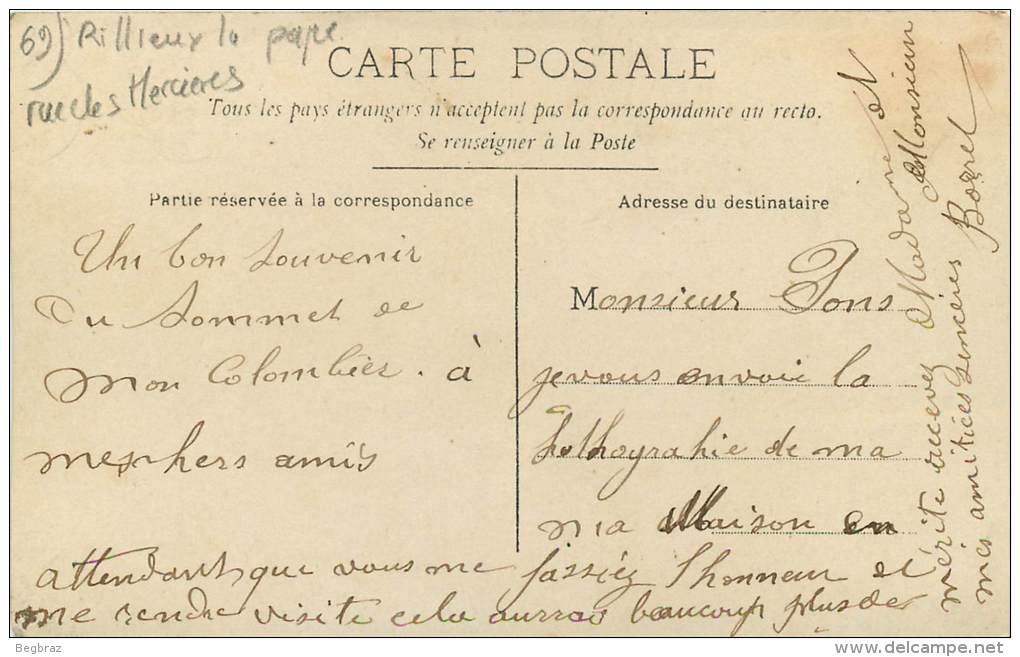 69) Rillieux la pape
rue des Mercières
CARTE POSTALE
Tous les pays étrangers n'acceptent pas la correspondance au recto.
Se renseigner à la Poste
Partie réservée à la correspondance
Un bon souvenir
Du sommet de
mon Colombier. à
mes chers amis
Adresse du destinataire
Monsieur Pons
je vous envoie la
phothograhie de ma
ma Maison en
attendant que vous me fassiéz l'honneur et
me rendre visite cela auras beaucoup plus de
mérite recevez Madame et Monsieur
mes amitiées sincères Borrel
Begbraz
www.delcampe.net